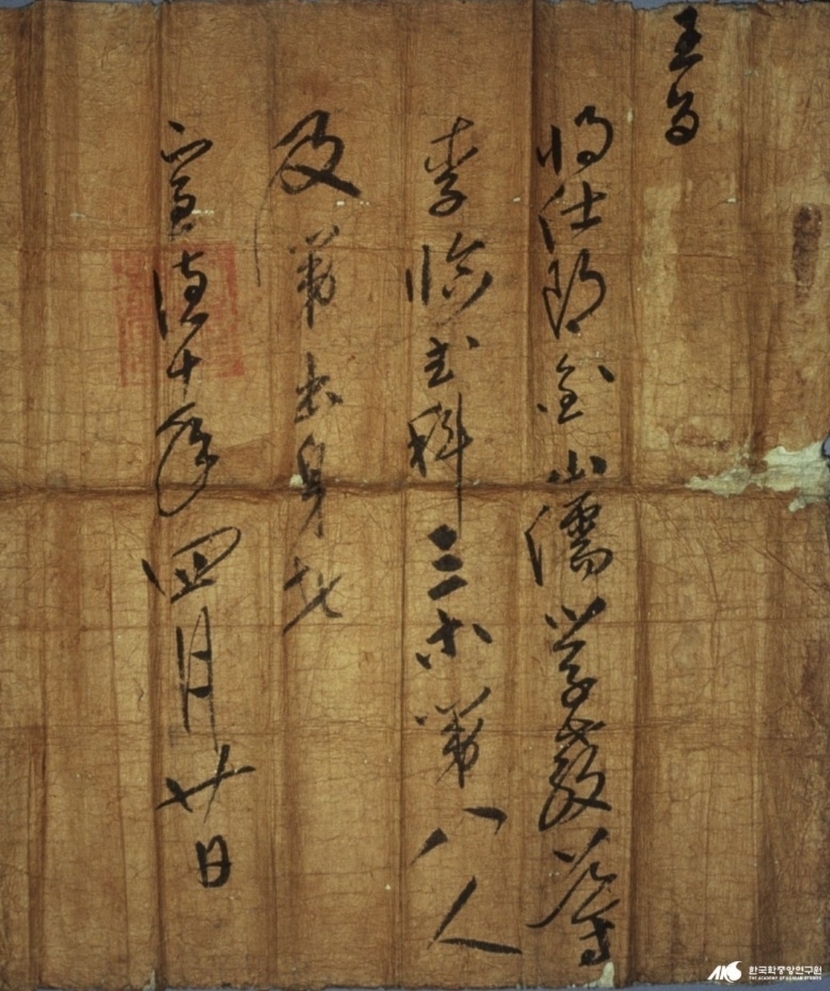 王旨
將仕郞金山儒學敎導
李臨武科三等第八人
及第出身者
宣德十年四月廿日
한국학중앙연구원
THE ACADEMY OF KOREAN STUDIES